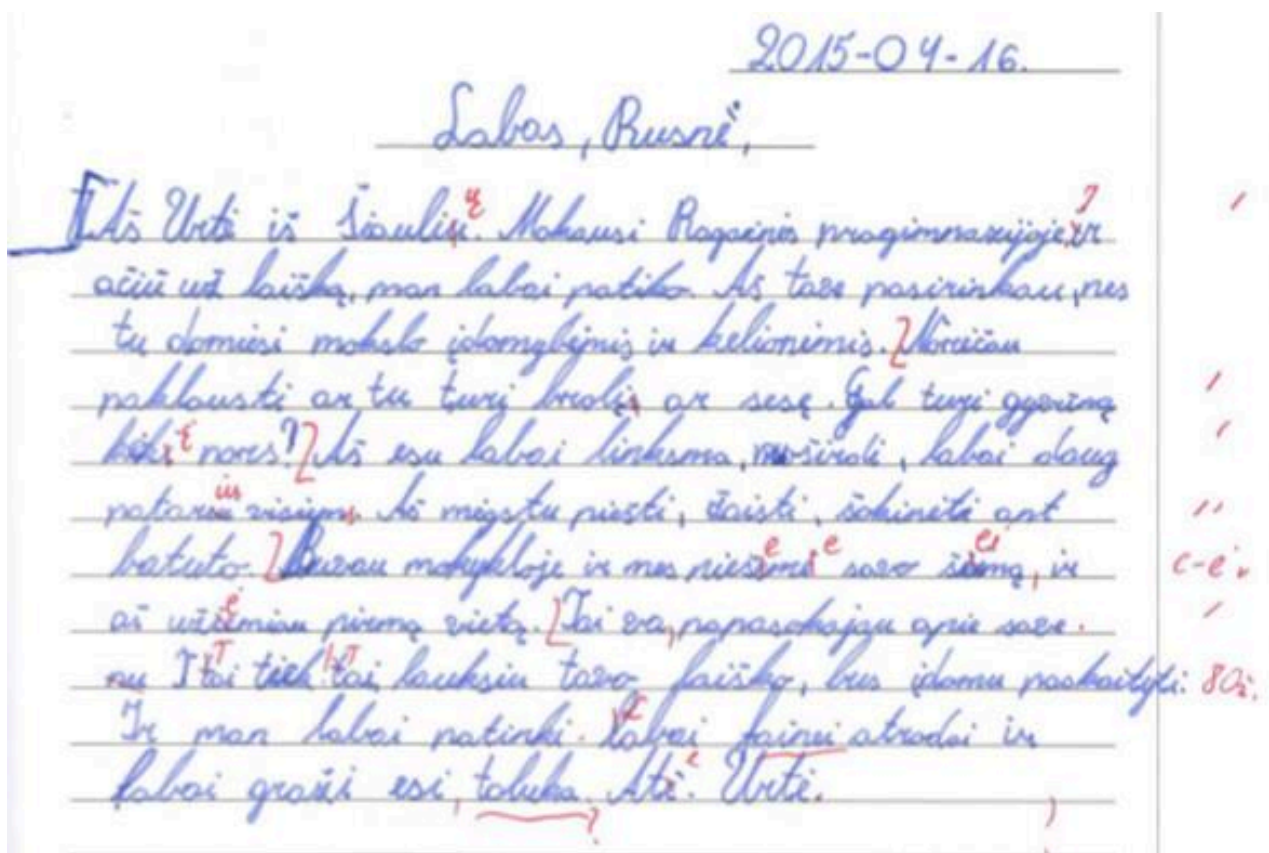 2015-04-16.
Labas, Rusnė,
Aš Urtė iš Šiaulių. Mokausi Ragainės progimnazijoje ir
ačiū už laišką, man labai patiko. Aš tave pasirinkau, nes
tu domiesi mokslo įdomybėmis ir kelionėmis. Norėčau
paklausti ar tu turi brolį, ar sesę. Gal turi gyvūną
kokį nors? Aš esu labai linksma, nuoširdi, labai daug
patariu visiem. Aš mėgstu piešti, žaisti, šokinėti ant
batuto. Buvau mokykloje ir mes piešėme savo šeimą, ir
aš užėmiau pirmą vietą. Tai va, papasakojau apie save.
nu I tai tiek tai, lauksiu tavo laiško, bus įdomu paskaityti. 80ž.
Ir man labai patinki. Labai fainei atrodai ir
labai graži esi, toluka. Atė. Urtė.